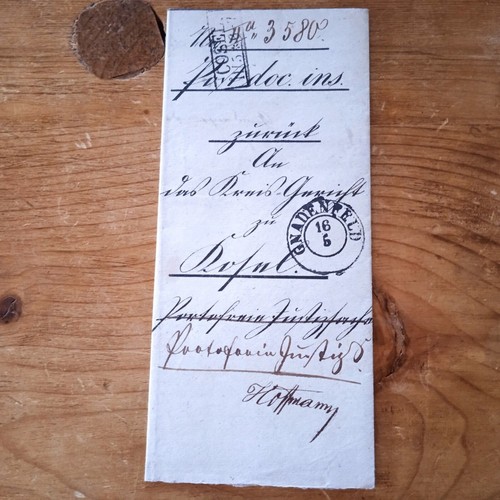 3580.
COSEL
Post doc. ins.
zurück
An
das Kreis-Gericht
zu
GNADENFELD
16
5
Kosel.
Portofreie Justizsache
Portofreie Justiz S.
Hoffmann